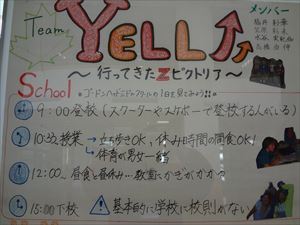 Team
YELL
メンバー
～行ってきたZビクトリア～
School
ゴードンヘッドミドルスクールの1日を見てみよう!!
9:00登校(スクーターやスケボーで登校する人がいる)
10:30授業→立ち歩きOK、休み時間の間食OK!
体育が男女一緒
12:00~ 昼食と昼休み…教室にかぎがかかる?
15:00下校 基本的に学校に校則がない